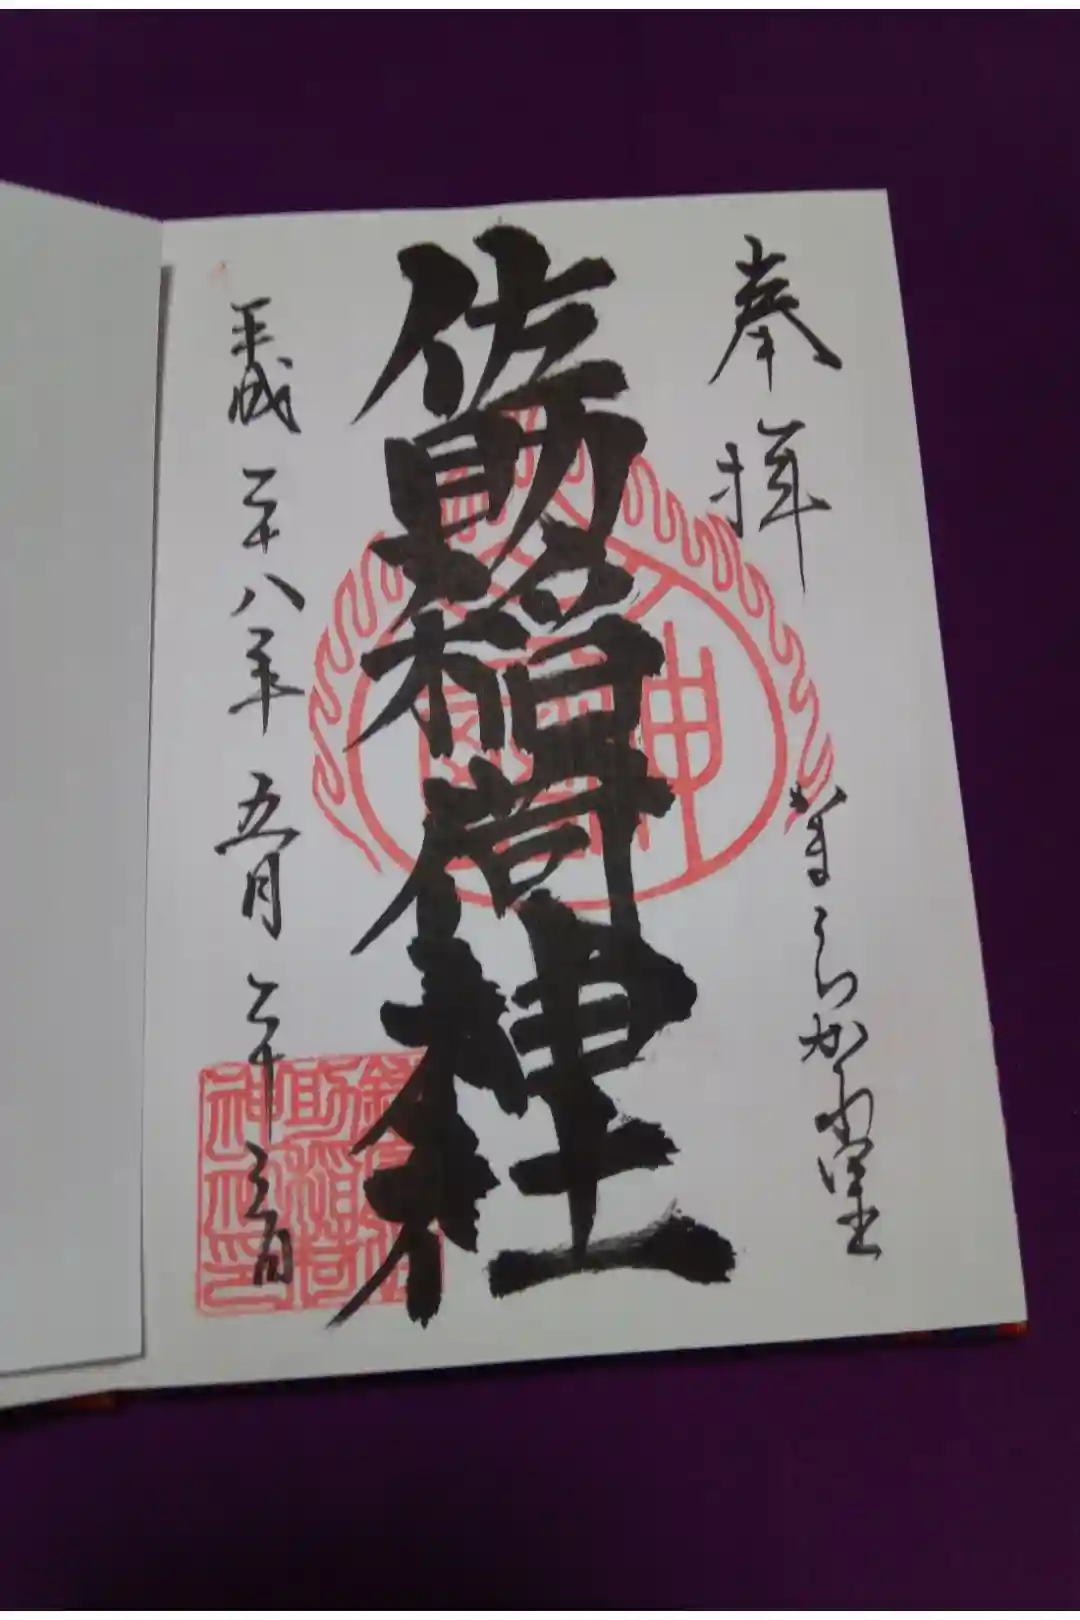 奉拝
かまくらかくれ里
佐助稲荷神社
平成二十八年五月二十三日
鎌倉佐
助稲荷
神社印